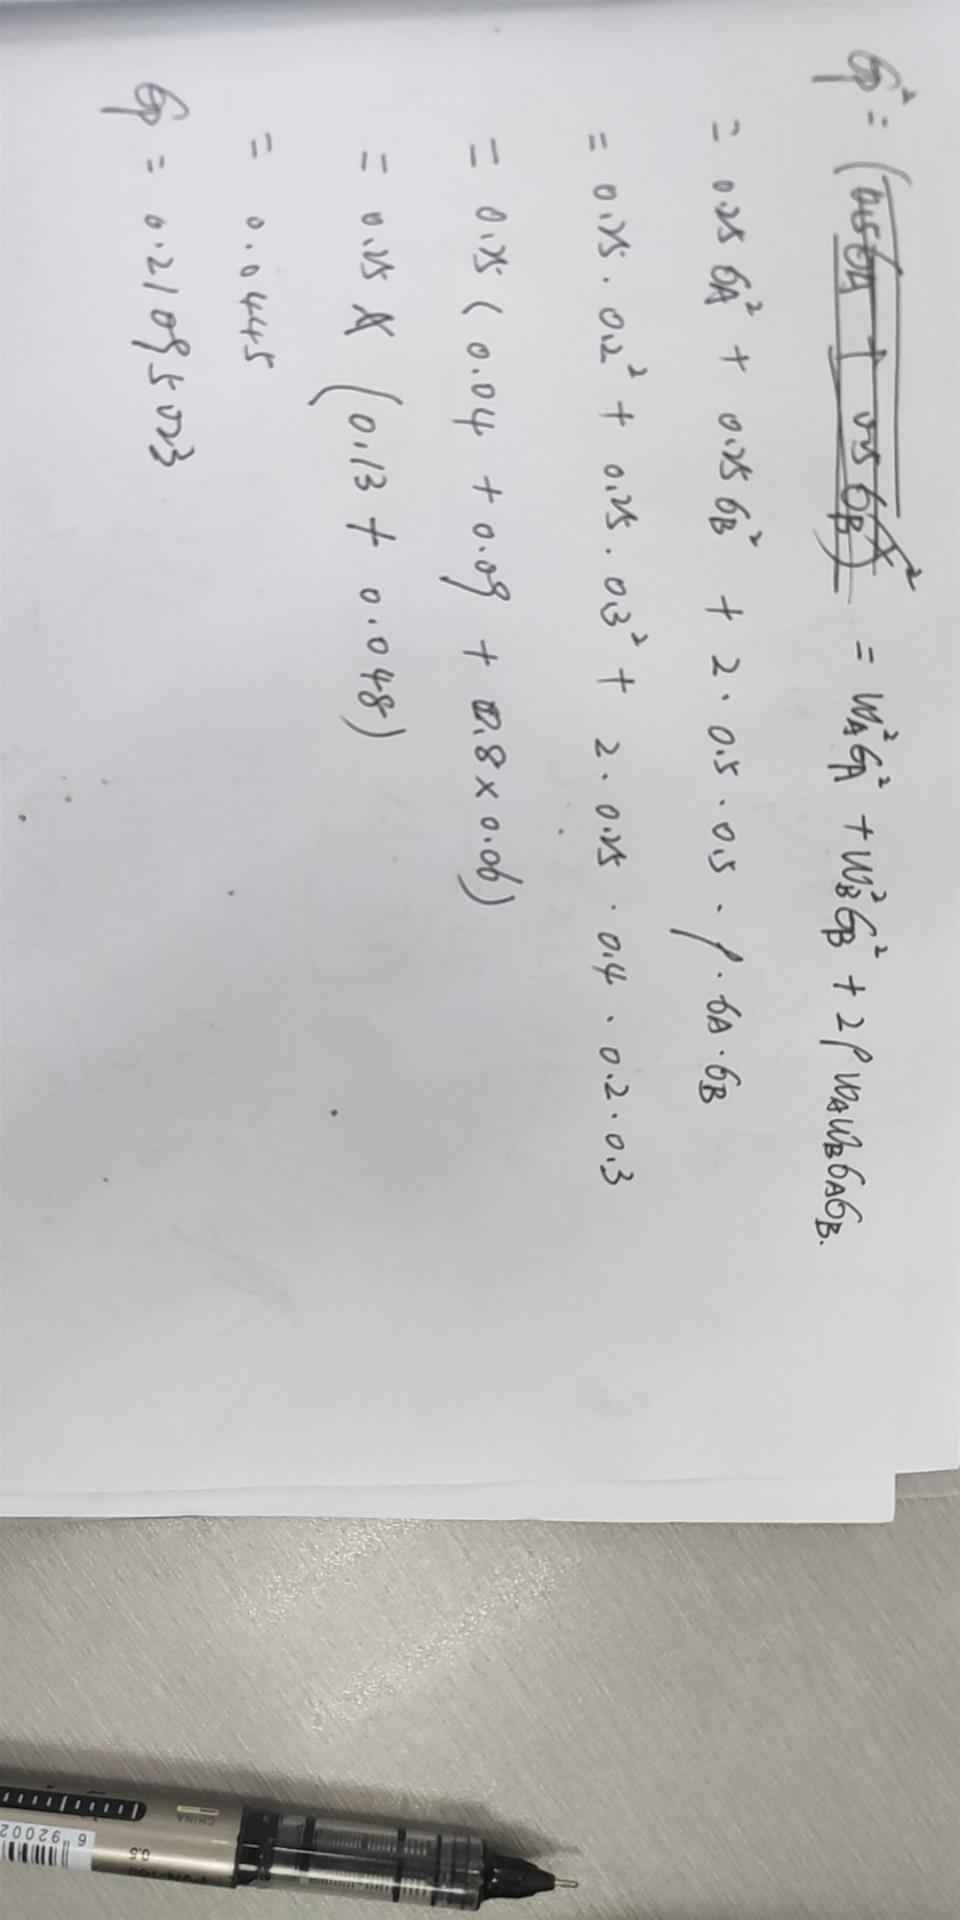 σp² = (0.5σA + 0.5σB)² = wA²σA² + wB²σB² + 2ρwAwBσAσB.
= 0.25σA² + 0.25σB² + 2·0.5·0.5·ρ·σA·σB
= 0.25·0.2² + 0.25·0.3² + 2·0.25·0.4·0.2·0.3
= 0.25(0.04 + 0.09 + 0.8×0.06)
= 0.25 × (0.13 + 0.048)
= 0.0445
σp = 0.21095023
CHINA
0.5
6 92002